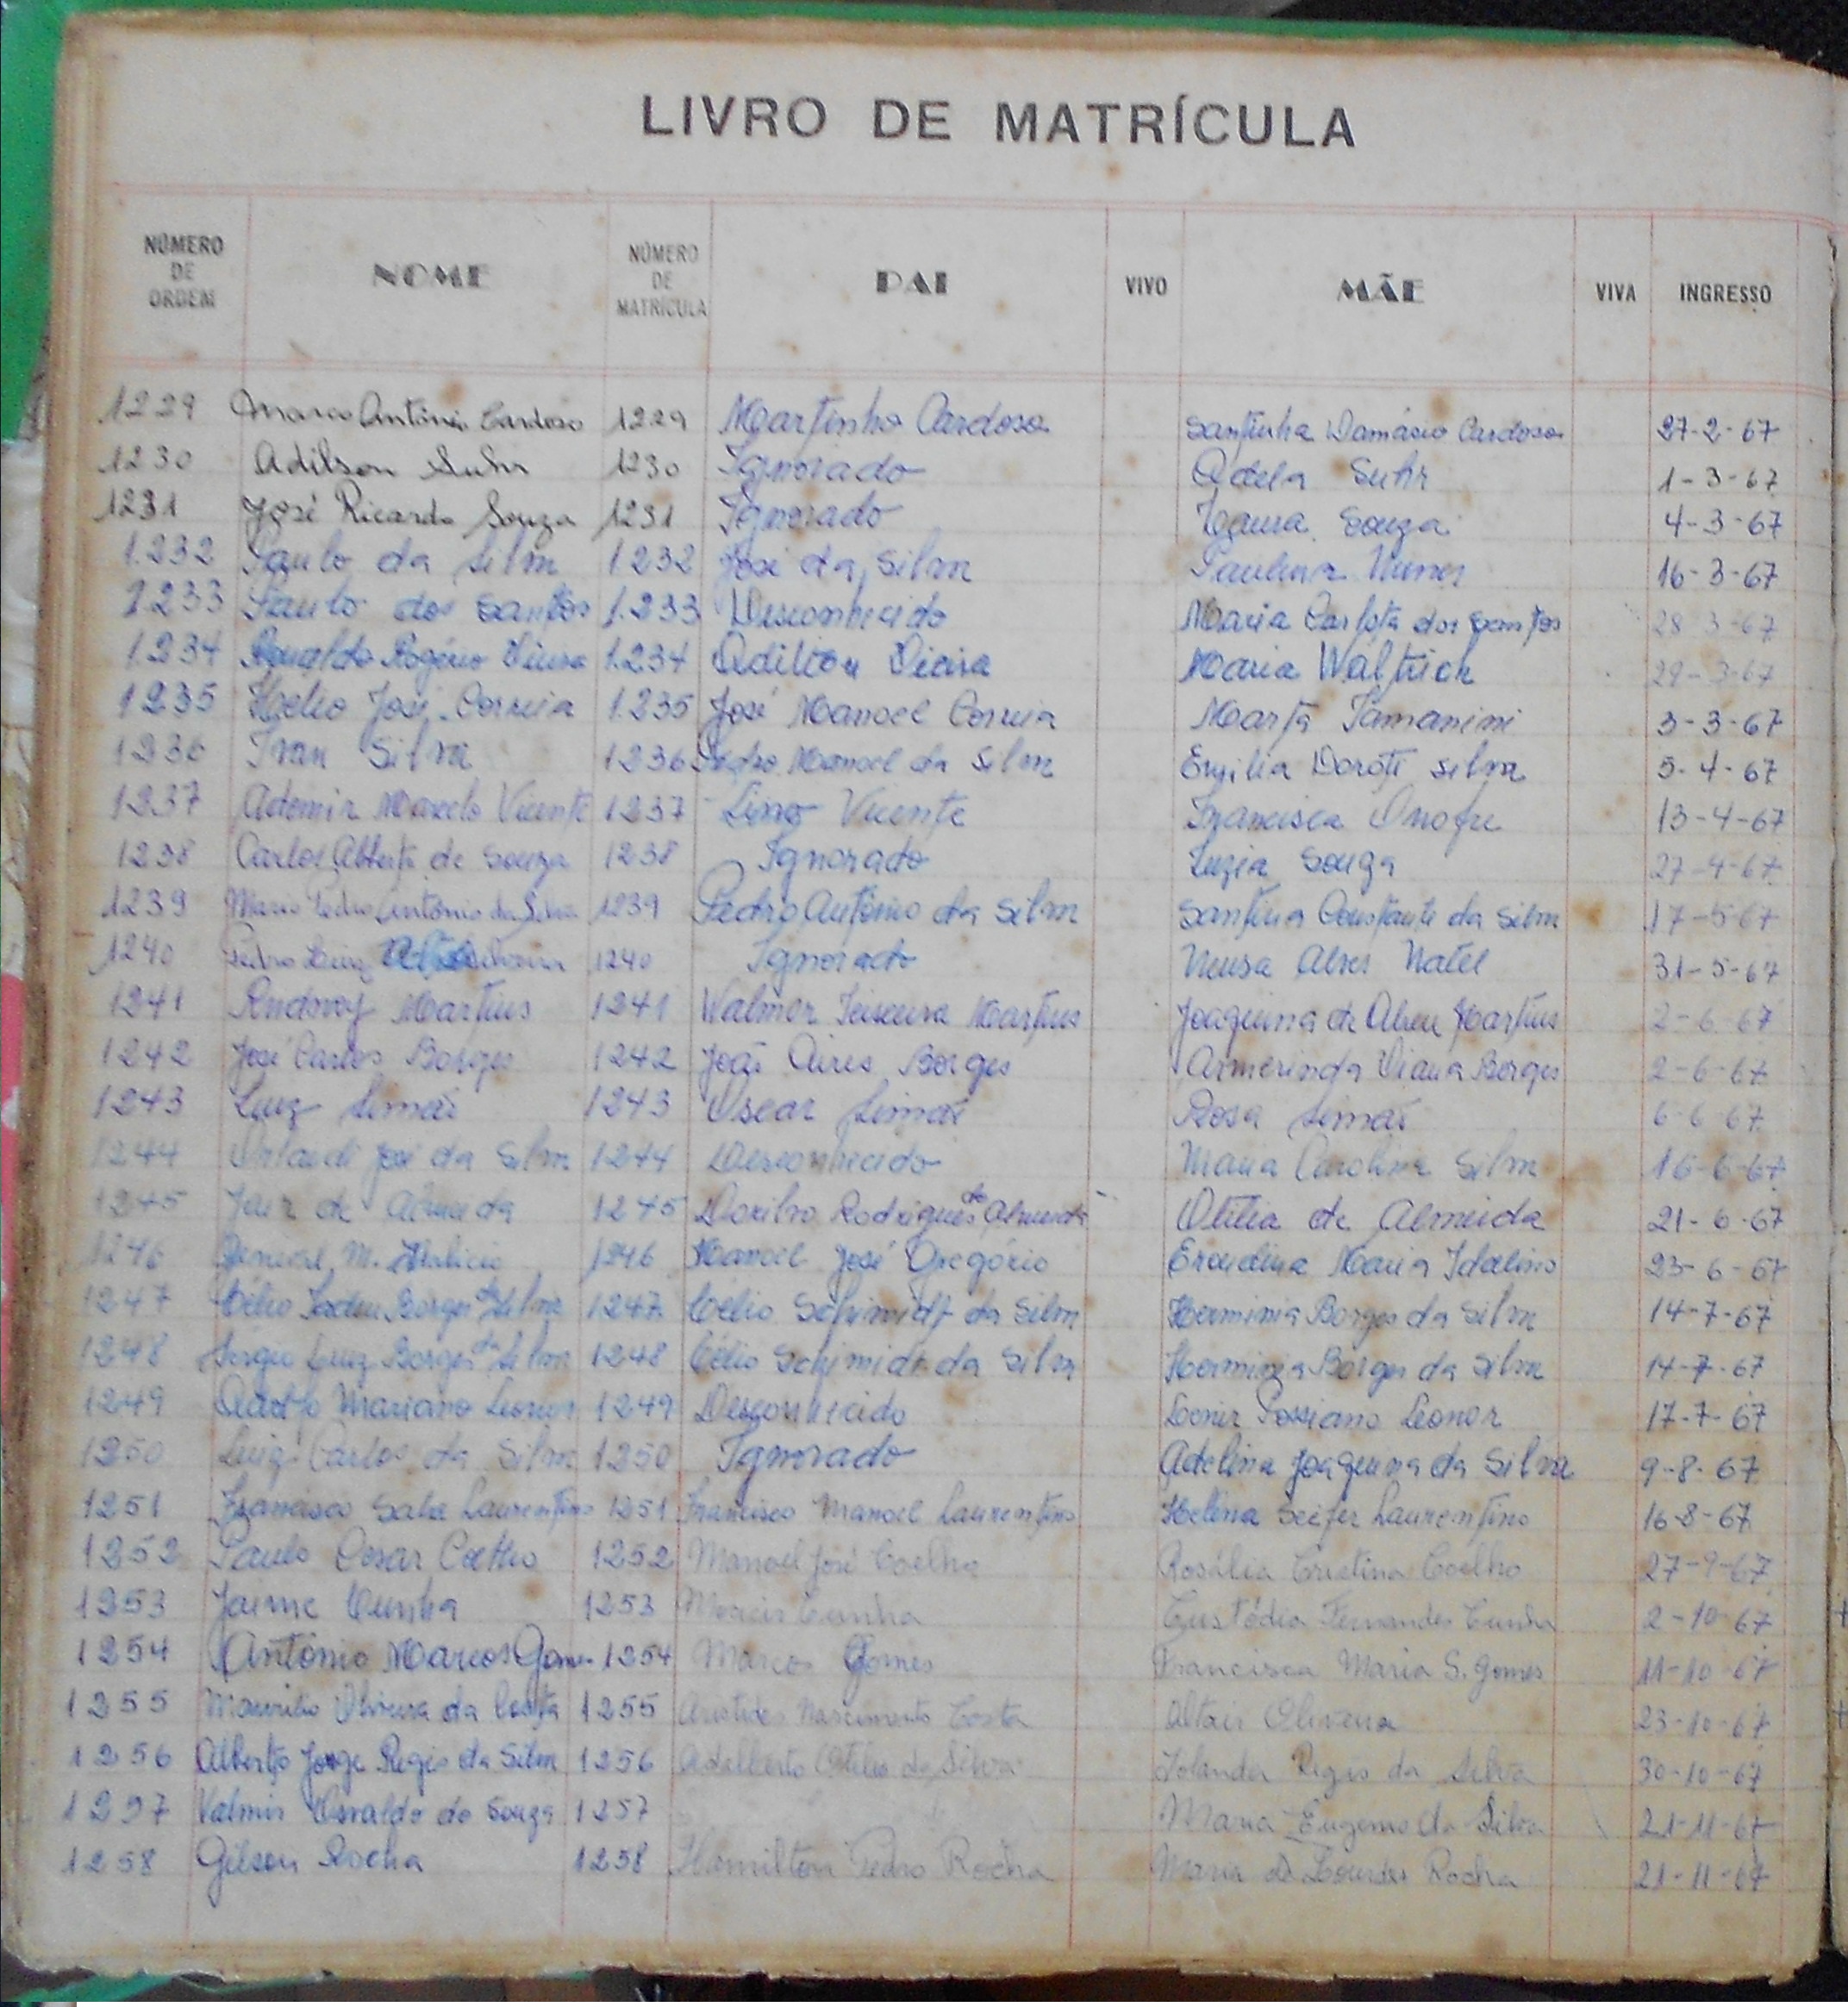 LIVRO DE MATRÍCULA
NÚMERO DE ORDEM NOME NÚMERO DE MATRÍCULA PAI VIVO MÃE VIVA INGRESSO
1229 Marco Antônio Cardoso 1229 Martinho Cardoso Santinha Damásio Cardoso 27-2-67
1230 Adilson Suhr 1230 Ignorado Adela Suhr 1-3-67
1231 José Ricardo Souza 1231 Ignorado Souza 4-3-67
1.232 Paulo da Silva 1.232 José da Silva Paulina Nunes 16-3-67
1.233 Paulo dos Santos 1.233 Desconhecido Maria Carlota dos Santos 28-3-67
1.234 Ronaldo Rogério Vieira 1.234 Adilson Vieira Maria Waltrick 29-3-67
1235 Helio José Correia 1.235 José Manoel Correia Marta Tamanini 3-3-67
1236 Ivan Silva 1236 Pedro Manoel da Silva Emilia Doroti Silva 5-4-67
1237 Ademir Marcelo Vicente 1237 Lino Vicente Francisca Onofre 13-4-67
1238 Carlos Alberto de Souza 1238 Ignorado Luzia Souza 27-4-67
1239 Mario Pedro Antônio da Silva 1239 Pedro Antônio da Silva Santina Constante da Silva 17-5-67
1240 Pedro Luiz 1240 Ignorado Neusa Alves Natel 31-5-67
1241 Martins 1241 Walmor Teixeira Martins Joaquina de Abreu Martins 2-6-67
1242 José Carlos Borges 1242 João Aires Borges Armerinda Viana Borges 2-6-67
1243 Luiz Simas 1243 Oscar Simas Rosa Simas 6-6-67
1244 José da Silva 1244 Desconhecido Maria Carolina Silva 16-6-67
1245 Jair de Almeida 1245 Rodrigues de Almeida Otilia de Almeida 21-6-67
1246 M. 1246 Manoel José Gregório Maria Idalino 23-6-67
1247 Célio Tadeu Borges da Silva 1247 Célio Schimidt da Silva Herminia Borges da Silva 14-7-67
1248 Sérgio Luiz Borges da Silva 1248 Célio Schimidt da Silva Herminia Borges da Silva 14-7-67
1249 Adolfo Mariano Leonor 1249 Desconhecido Leonor 17-7-67
1250 Luiz Carlos da Silva 1250 Ignorado Adelina Joaquina da Silva 9-8-67
1251 Francisco Laurentino 1251 Francisco Manoel Laurentino Helena Laurentino 16-8-67
1252 Paulo Cesar Coelho 1252 Manoel José Coelho Rosália Cristina Coelho 27-9-67
1253 Jaime Cunha 1253 Moacir Cunha Custódia Fernandes Cunha 2-10-67
1254 Antônio Marcos Gomes 1254 Marcos Gomes Francisca Maria S. Gomes 11-10-67
1255 Maurilio Oliveira da Costa 1255 Aristides Nascimento Costa Altair Oliveira 23-10-67
1256 Alberto Jorge Regis da Silva 1256 Adalberto Otilio da Silva Iolanda Regis da Silva 30-10-67
1257 Valmir Osvaldo de Souza 1257 Maria da Silva 21-11-67
1258 Gilson Rocha 1258 Hamilton Pedro Rocha Maria de Lourdes Rocha 21-11-67